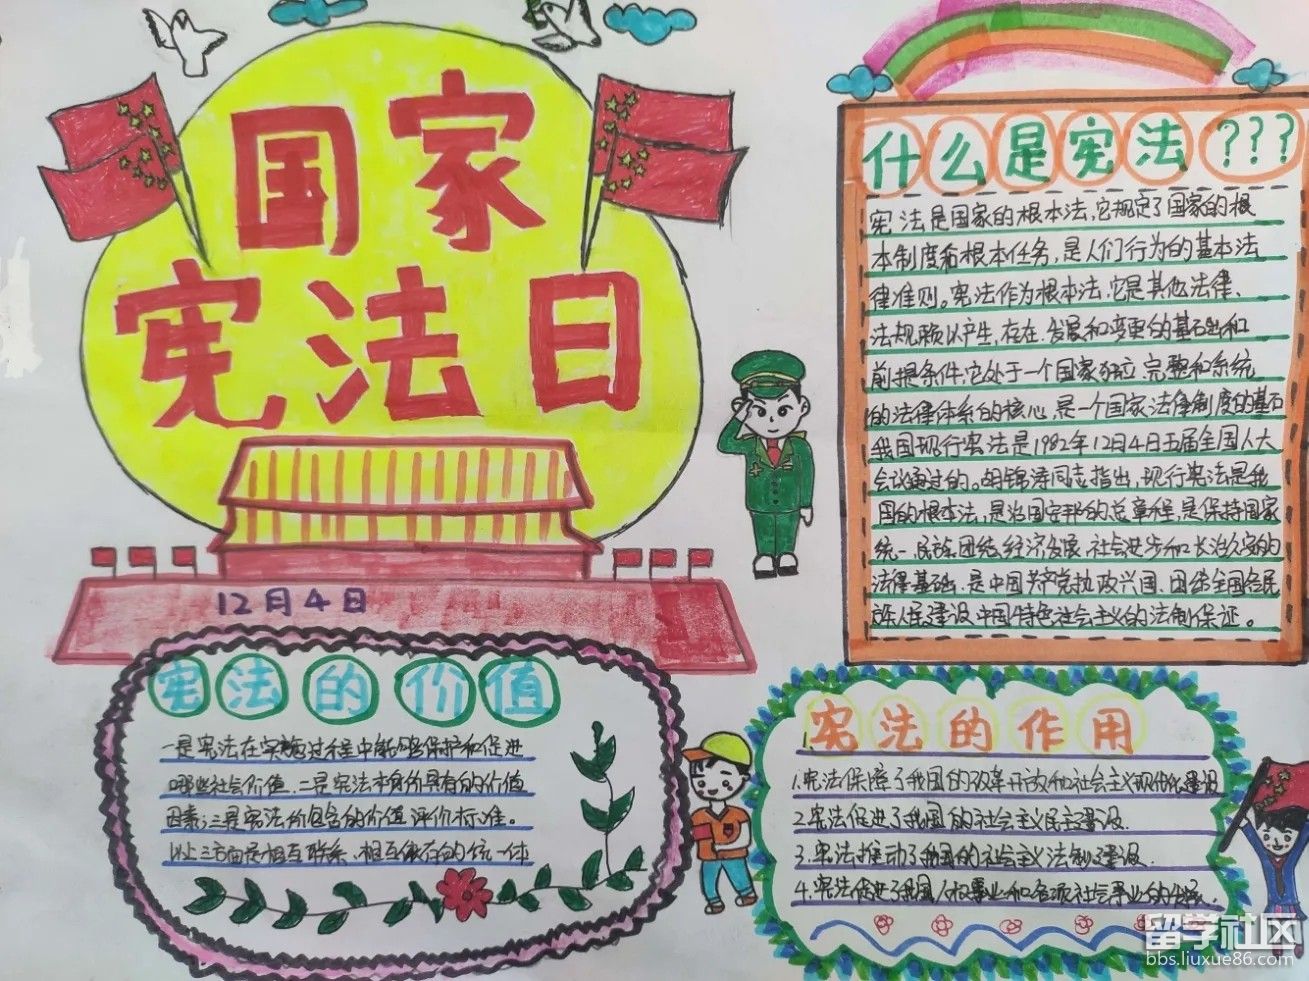 国家
宪法日
12月4日
什么是宪法???
宪法是国家的根本法,它规定了国家的根
本制度和根本任务,是人们行为的基本法
律准则。宪法作为根本法,它是其他法律、
法规赖以产生,存在.发展和变更的基石出和
前提条件,它处于一个国家独立,完整和系统
的法律体系的核心,是一个国家法律制度的基石
我国现行宪法是1982年12月4日五届全国人大
会议通过的。胡锦涛同志指出,现行宪法是我
国的根本法,是治国安邦的总章程,是保持国家
统一.民族团结,经济发展.社会进步和长治久安的
法律基础.是中国共产党执政兴国.团结全国各民
族人民建设中国特色社会主义的法制保证。
宪法的价值
一是宪法在实施过程中能够保护和促进
哪些社会价值.二是宪法本身具有的价值
因素;三是宪法所包含的价值评价标准。
以上三方面是相互联系.相互依存的统一体
宪法的作用
1.宪法保障了我国的改革开放和社会主义现代化建设
2.宪法促进了我国的社会主义民主建设.
3.宪法推动了我国的社会主义法制建设.
4.宪法促进了我国人权事业和各项社会事业的发展.
留学社区
bbs.liuxue86.com